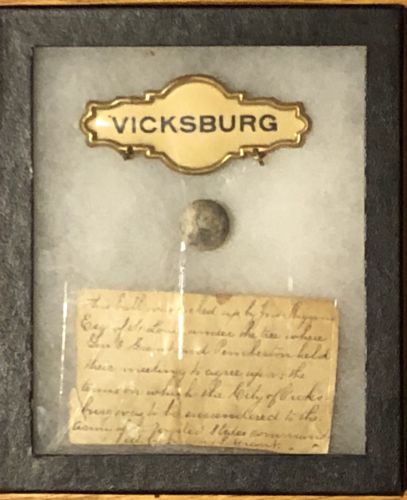 VICKSBURG
This ball was picked up by
Esq of St Louis under the tree where
Gen's Grant and Pemberton held
their meeting to agree upon the
terms on which the City of Vicks-
burg was to be surrendered to the
army of United States
Grant